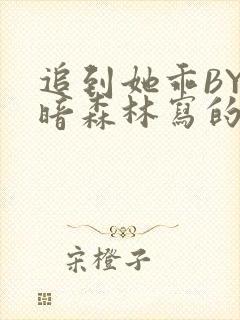 追到她乖BY
暗森林寫的
宋橙子